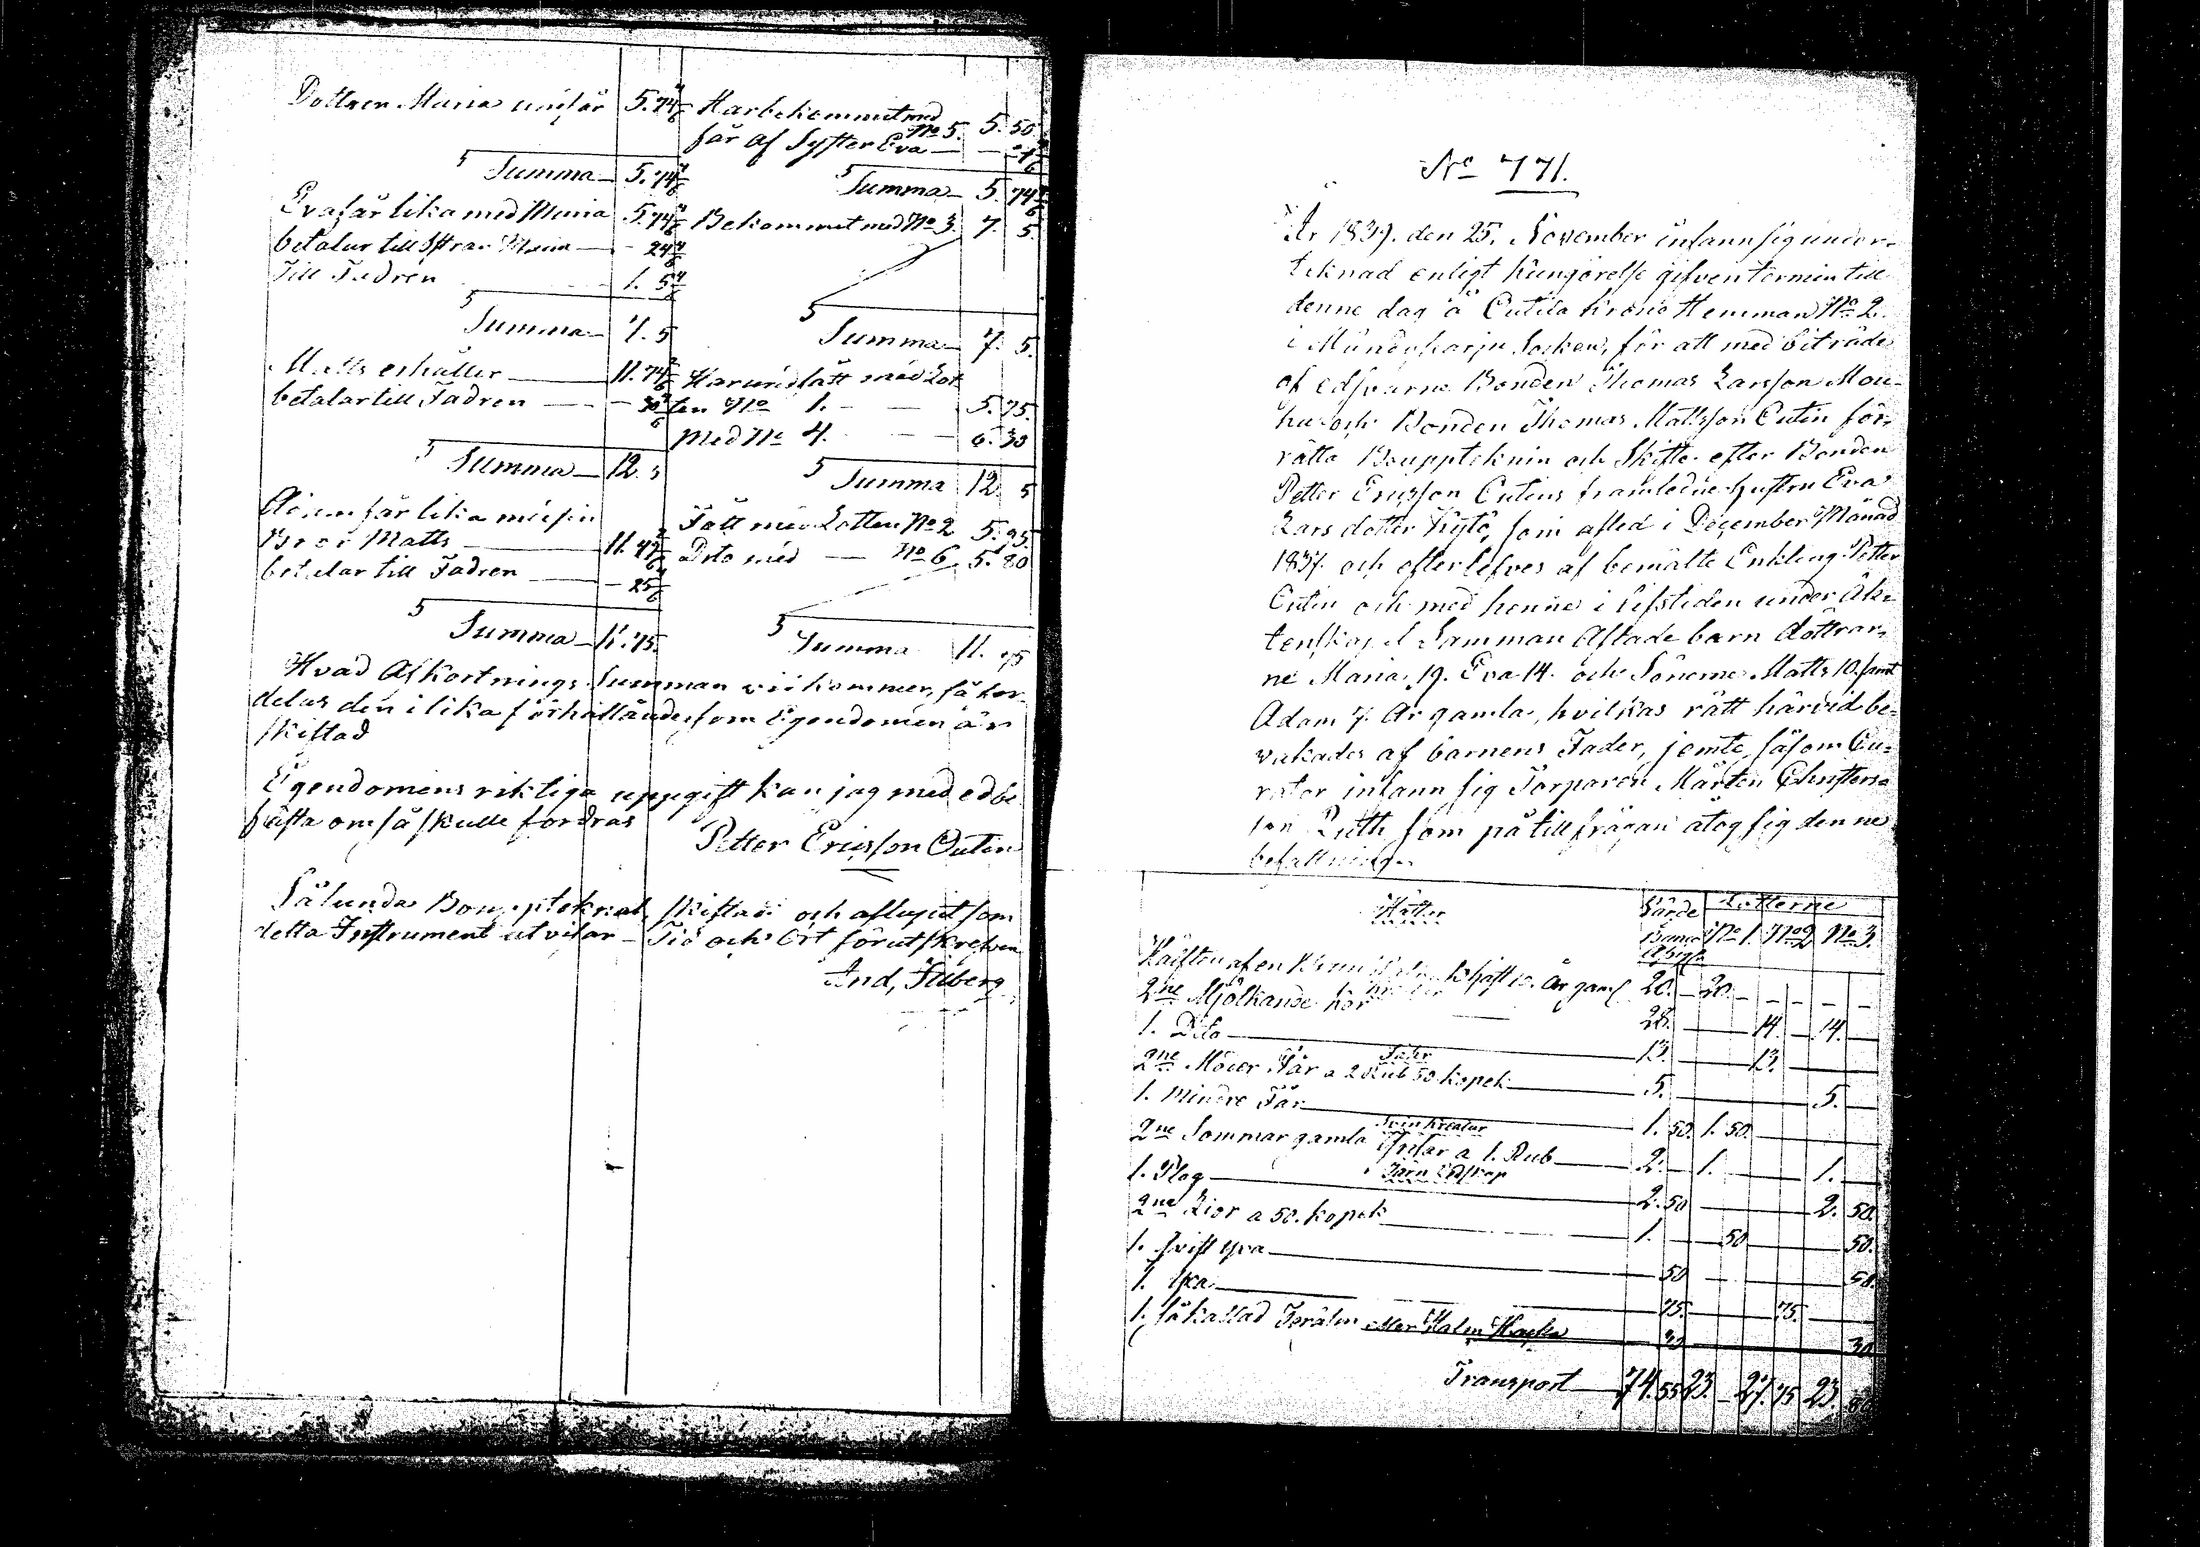 Dottren Maria unfår 5.74 4/6 Har bekommit med
No 5. 5. 50.
får af Syster Eva — — 24 4/6
Summa — 5.74 4/6 Summa — 5 74 4/6
Eva får lika med Maria 5.74 4/6 Bekommit med No 3. 7. 5.
betalar till Systran Maria — - 24 4/6
Till Fadren 1. 5 4/6
Summa — 7. 5 Summa — 7. 5.
Matts erhåller — 11. 74 Har undfått med Lot
betalar till Fadren — — 30 ten No 1. — — 5. 75.
med No 4. — — 6. 30
Summa — 12. 5 Summa 12. 5
Adam får lika med sin Fått med Lotten No 2 5. 95.
Bror Matts — 11. 49 Dito med — No 6 5. 80
betalar till Fadren — - 25
Summa — 11. 75. Summa 11. 75
Hvad Afkortnings Summan vidkommer, så for
delas den i lika förhållande som Egendomen är
skiftad
Egendomens riktiga uppgift kan jag med ed be
fästa om så skulle fordras
Petter Ericsson Outin
Sålunda Boupteknat, skiftadt och aflupit som
detta Instrument utvisar — Tid och Ort förut skrefven
And,
No 771.
År 1839. den 25. November infann sig under-
teknad enligt kungörelse gifven termin till
denne dag å Outila Krono Hemman No 2.
i Socken, för att med biträde
af edsvarne Bonden Thomas Larsson Mou-
hu och Bonden Thomas Mattsson Outin för-
rätta Bouppteknin och Skifte efter Bonden
Petter Ericsson Outins framledne hustru Eva
Lars dotter Hytö, som afled i December Månad
1837. och efterlefves af bemälte Enkling Petter
Outin och med henne i lifstiden under Äk-
tenskapet Samman Aflade barn döttrar-
ne Maria 19. Eva 14. och Sönerne Matts 10. samt
Adam 7. År gamla, hvilkas rätt härvid be-
vakades af barnens Fader, jemte såsom Cu-
rator infann sig Torparen Mårten Christers-
son Puth som på tillfrågan åtog sig denne
befattning.
Hästar Värde Lotterne
Banco No 1. No 2 No 3.
Assign.
Hälften af en år gaml 20. — 20. — — — — —
2ne Mjölkande Kor — 28. — — 14. — 14. —
1. Dito — 13. — — 13. —
Fåhr
2ne Möder Får a 2 Rub 50 kopek — 5. — 5. —
1. mindre Får — 1. 50. 1. 50. —
Svin Kreatur
2ne Sommar gamla a 1. Rub — 2. — 1. — 1. —
Järn Redskap
1. Plog — 2. 50 — 2. 50.
2ne Liar a 50. kopek — 1. — 50 — 50.
1. yxa — 50 — 50.
1. yxa — 75. — 75. —
1. så kallad eller Halm Hacka — 30 — 30.
Transport — 74. 55 23. — 27. 75. 23. 80